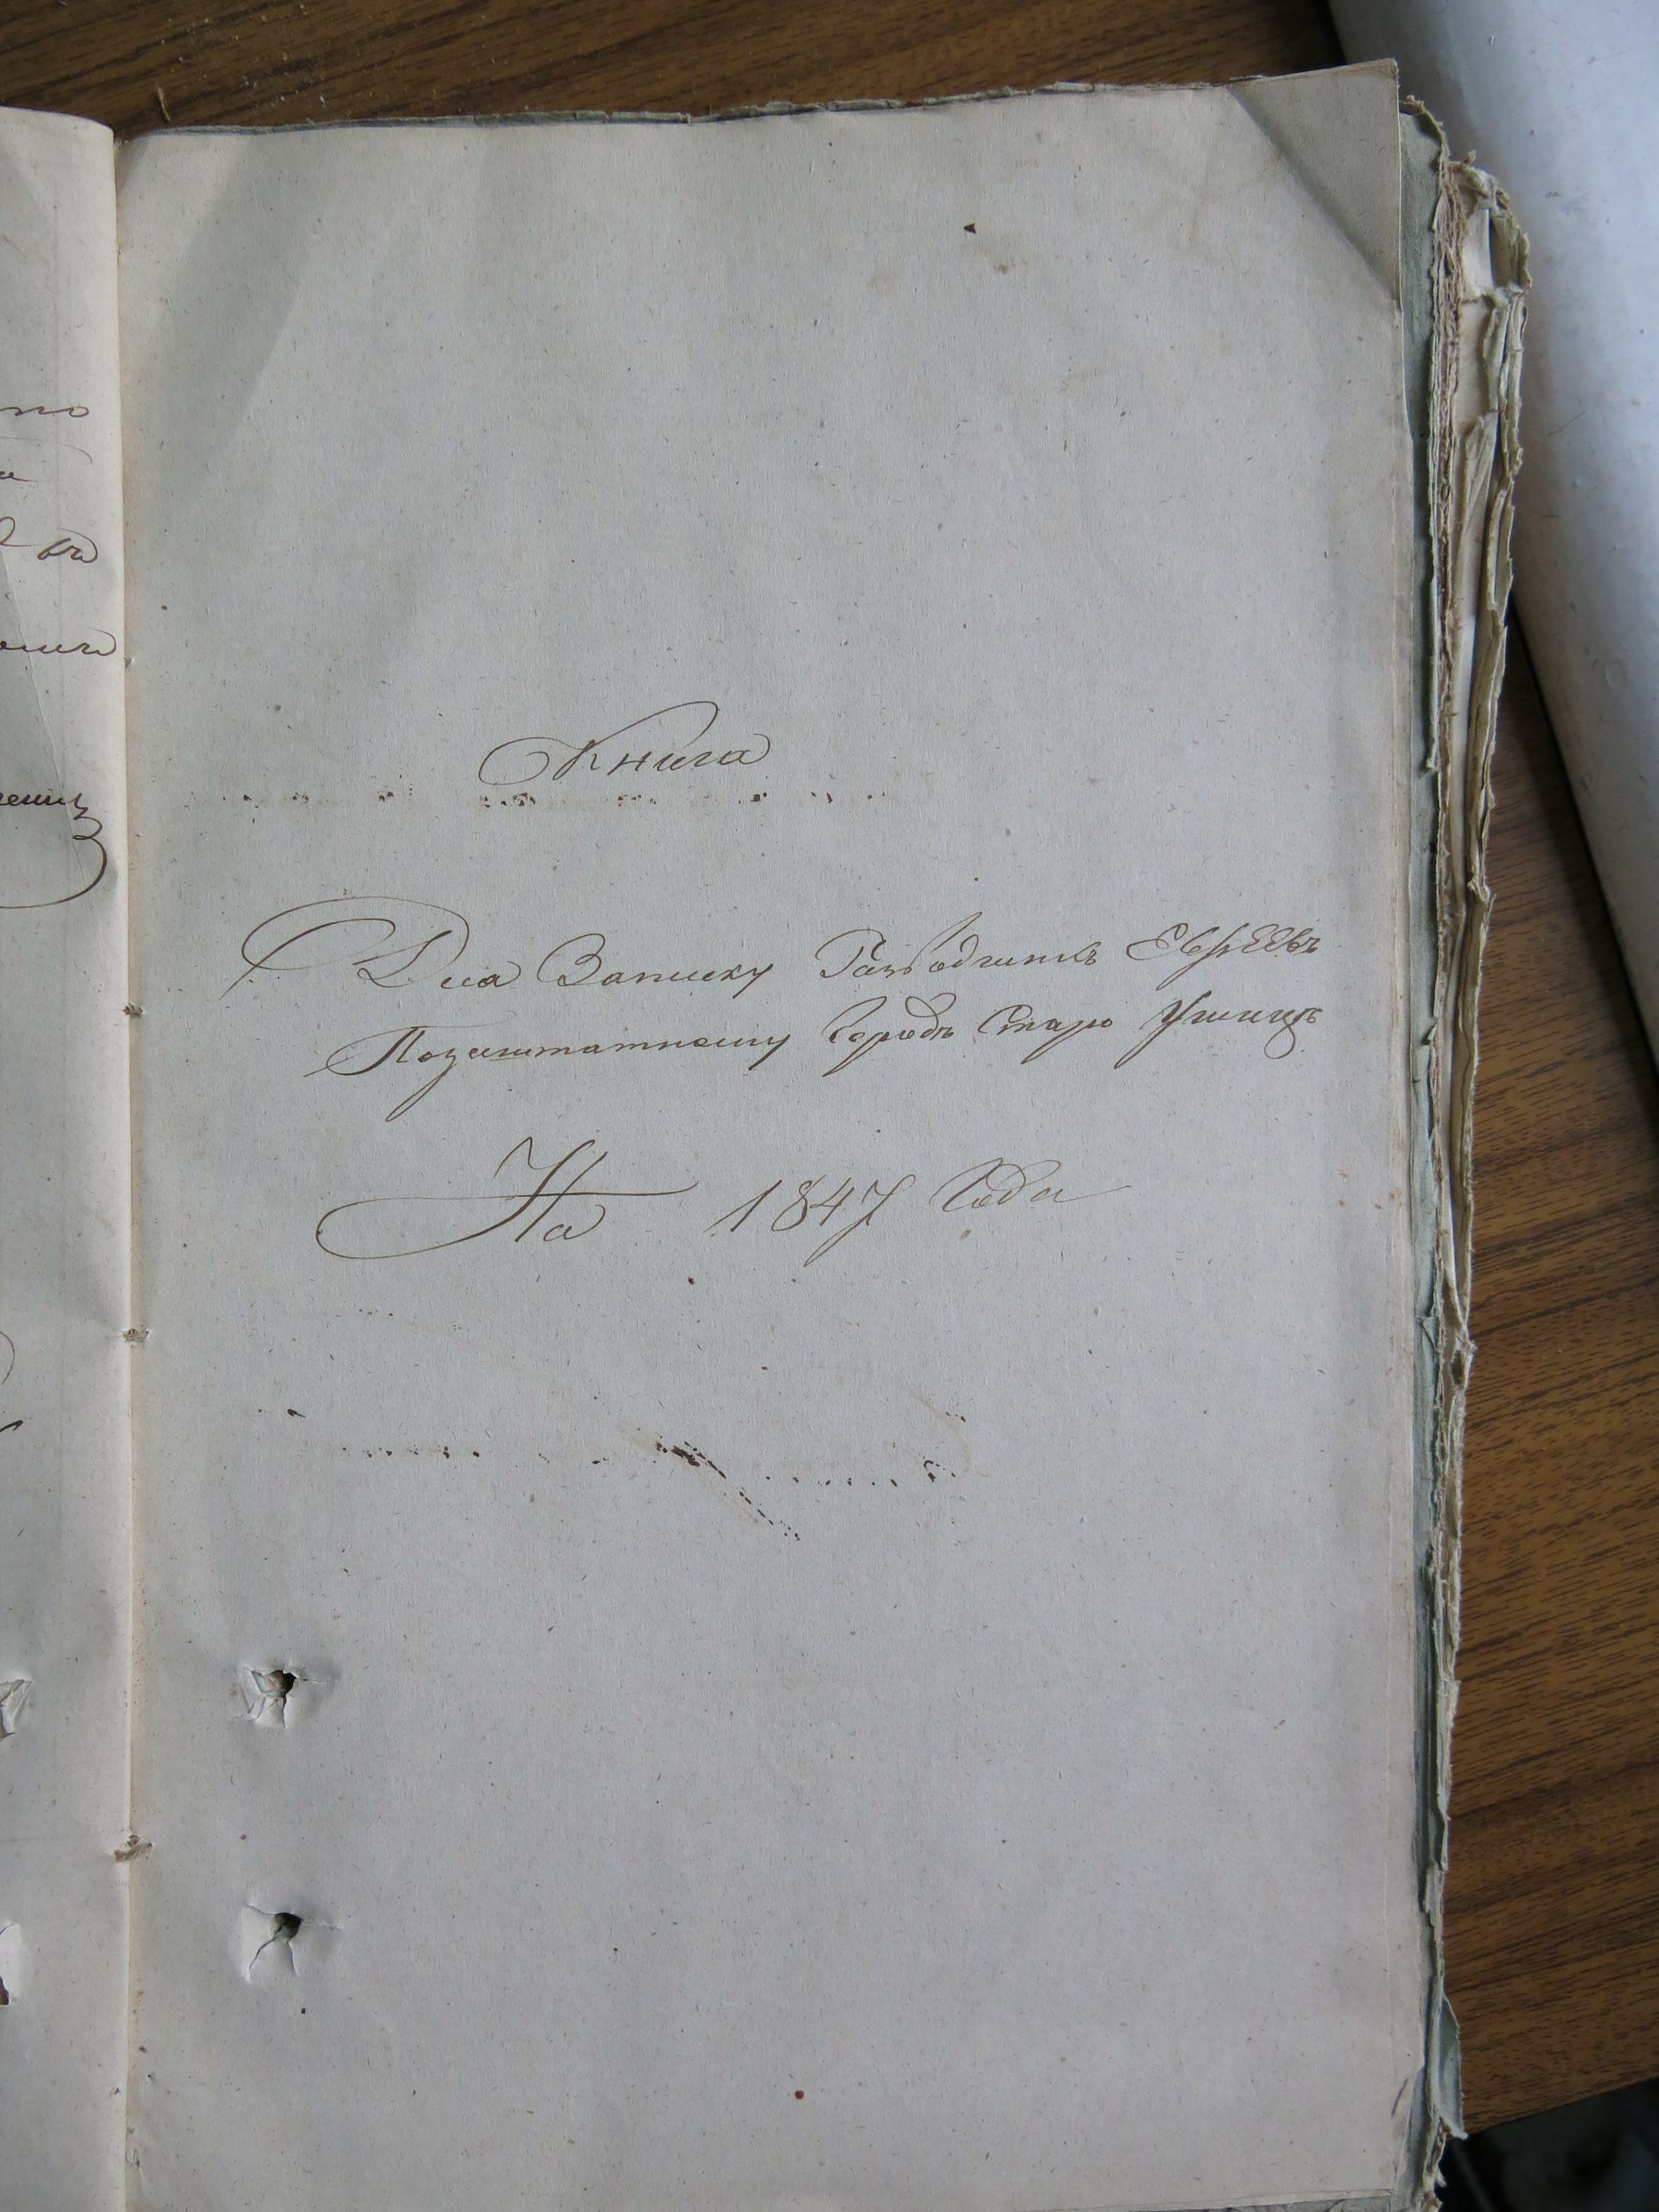 но
въ
Книга
Для Записку Разводимыхъ Евреевъ
Позаштатному Городу Старо Ушицѣ
На 1847 Года